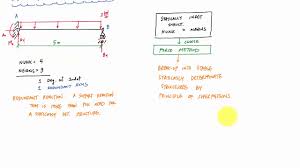 A
B
5 m
NUNK = 4
NEQNS = 3
1 Deg. of Indet.
1 REDUNDANT RXNS
REDUNDANT REACTION: A SUPPORT REACTION
THAT IS MORE THAN YOU NEED FOR
A STATICALLY DET. STRUCTURE.
STATICALLY INDET
STRUCT
NUNK > NEQNS
CHOICE
FORCE METHOD
BREAK-UP INTO STABLE
STATICALLY DETERMINATE
STRUCTURES BY
PRINCIPLE OF SUPERPOSITION